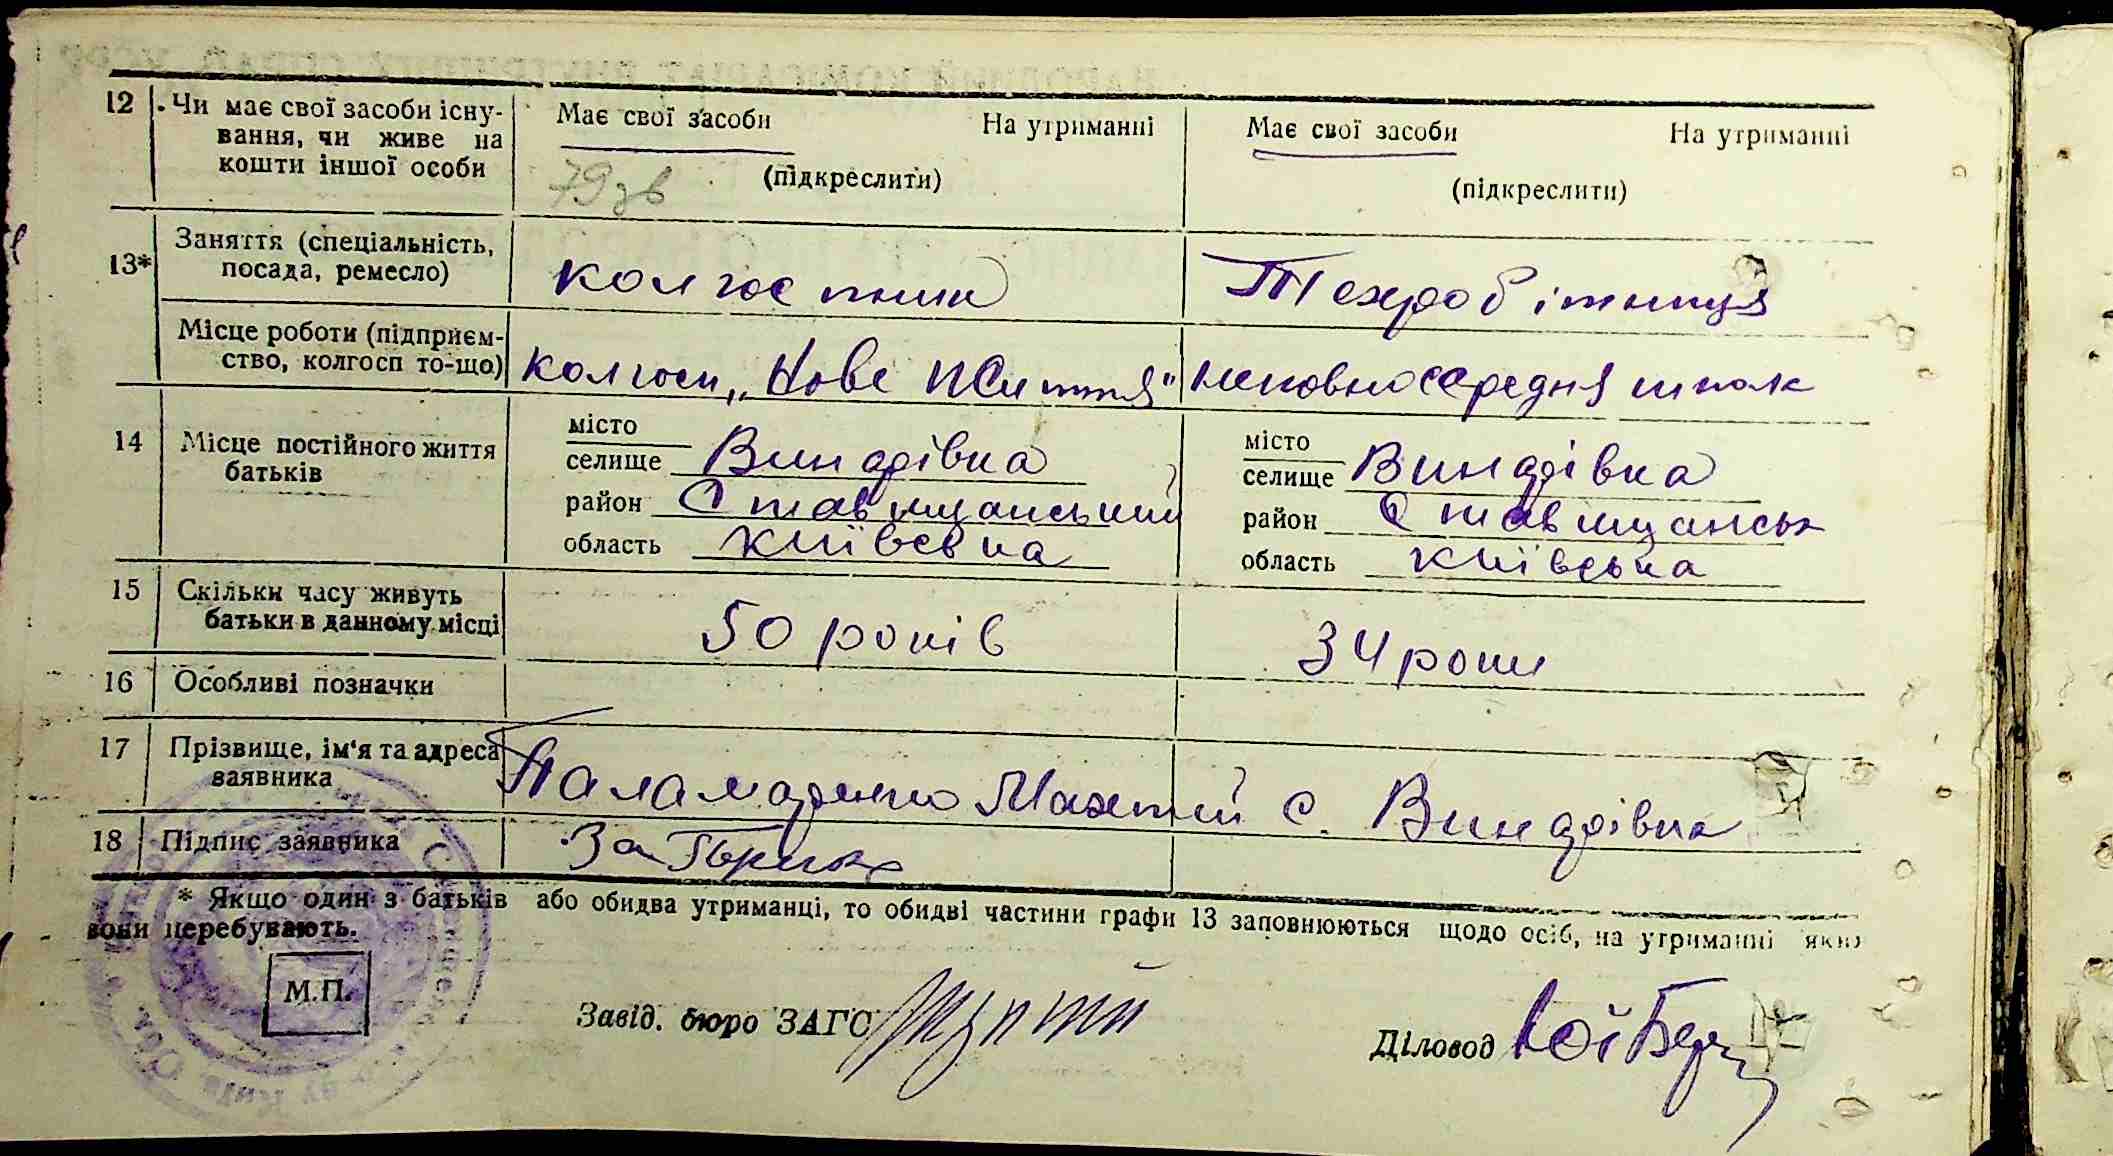 12 Чи має свої засоби існу-
вання, чи живе на
кошти іншої особи
Має свої засоби На утриманні
(підкреслити)
79 зв
Має свої засоби На утриманні
(підкреслити)
13* Заняття (спеціальність,
посада, ремесло)
колгоспник
Техробітниця
Місце роботи (підприєм-
ство, колгосп то-що)
колгосп „Нове Життя"
неповносередня школа
14 Місце постійного життя
батьків
місто
селище Винарівка
район Ставищанський
область Київська
місто
селище Винарівка
район Ставищанськ
область Київська
15 Скільки часу живуть
батьки в данному місці
50 років
34 роки
16 Особливі позначки
17 Прізвище, ім'я та адреса
заявника
Паламаренко Мактій с. Винарівка
18 Підпис заявника
За
* Якщо один з батьків або обидва утриманці, то обидві частини графи 13 заповнюються щодо осіб, на утриманні яких
вони перебувають.
М.П.
Завід. бюро ЗАГС
Діловод